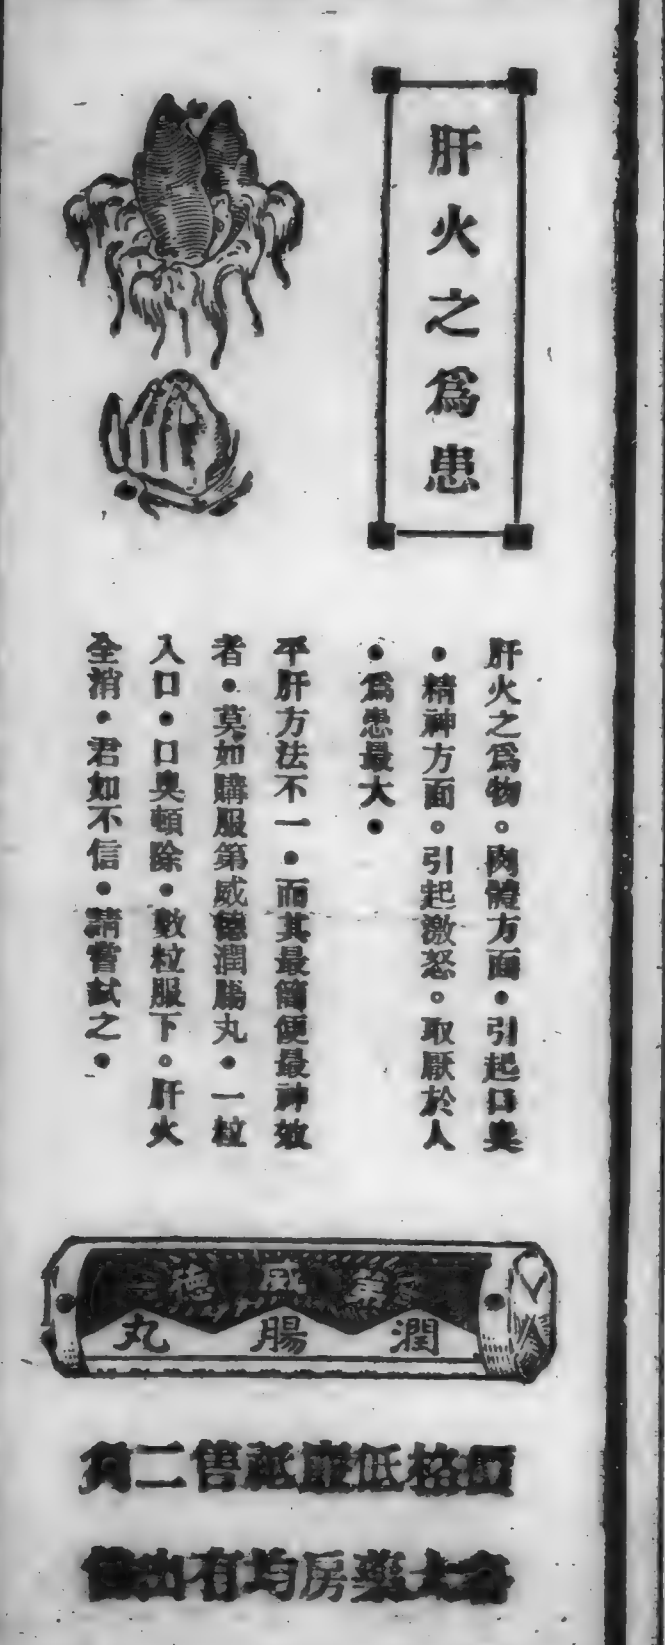 肝火之爲患
肝火之爲物。肉體方面•引起口臭
•精神方面。引起激怒。取厭於人
•爲患最大•
平肝方法不一•而其最簡便最神效
者•莫如購服第威德潤腸丸•一粒
入口•口臭頓除•數粒服下。肝火
全消•君如不信•請嘗試之•
第威德
潤腸丸
價格低廉祗售二角
各大藥房均有出售